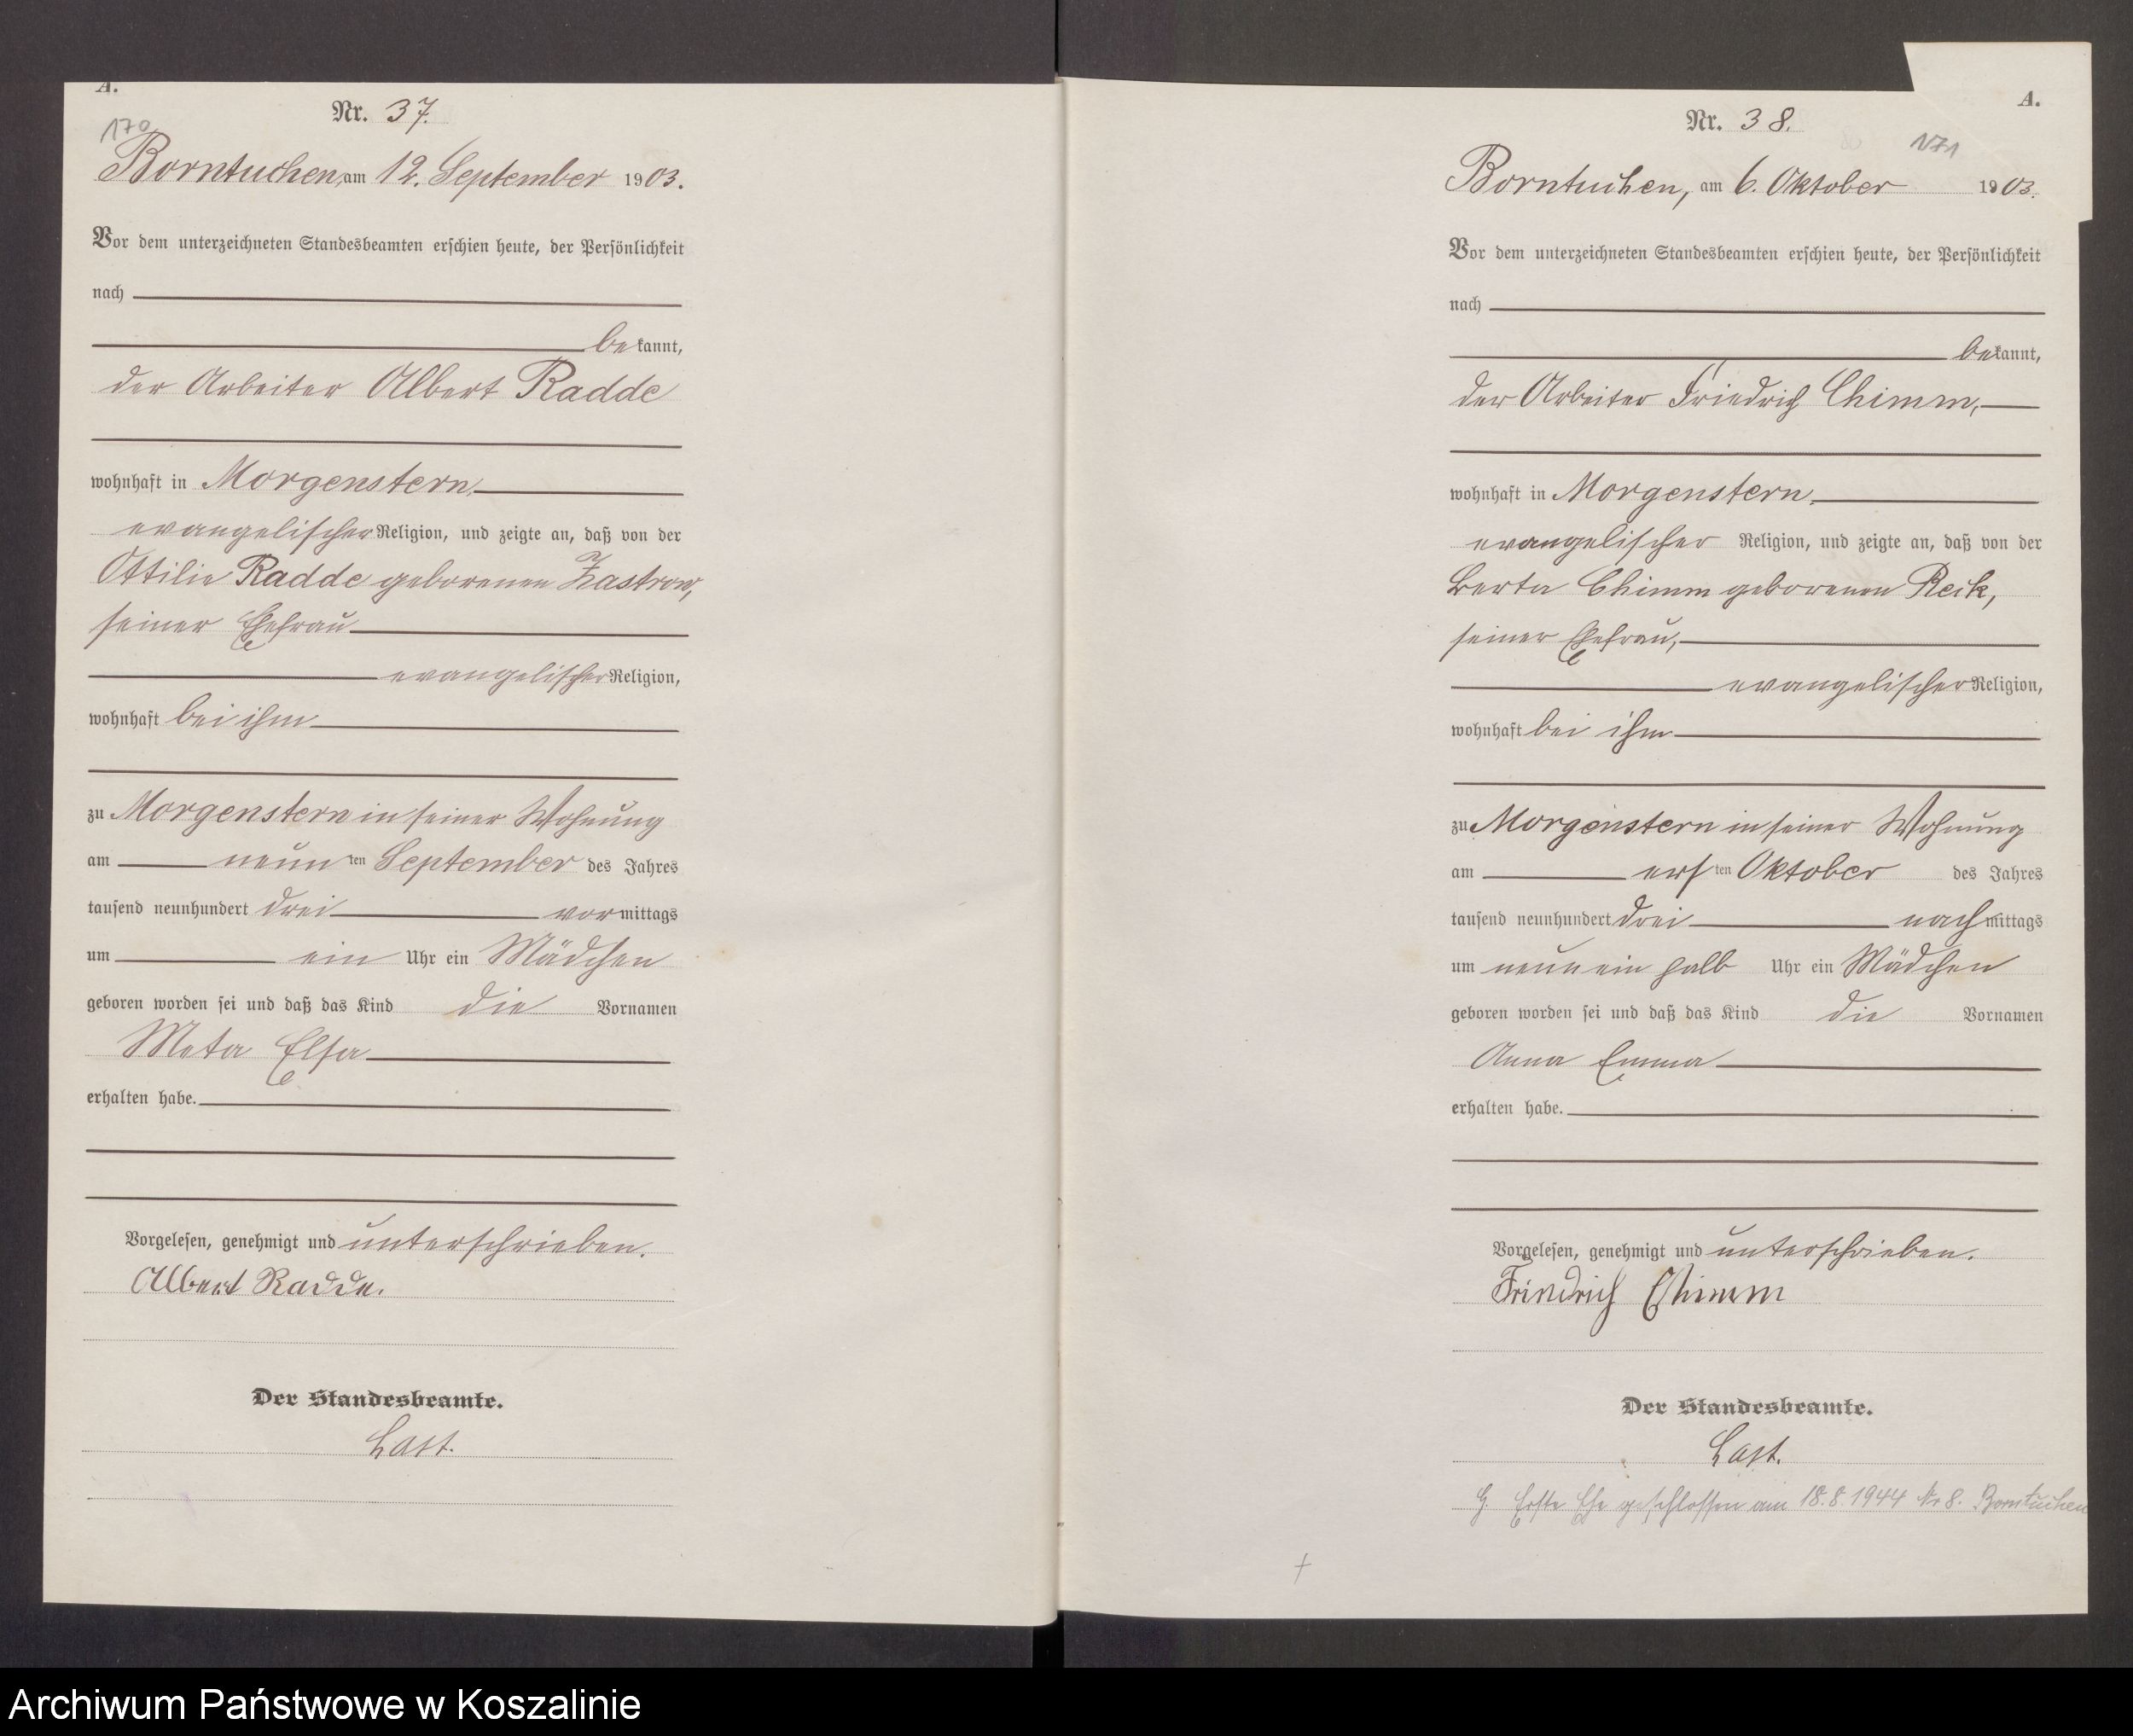 A.
Nr. 37.
170
Borntuchen, am 12. September 1903.
Vor dem unterzeichneten Standesbeamten erschien heute, der Persönlichkeit
nach
bekannt,
der Arbeiter Albert Radde
wohnhaft in Morgenstern,
evangelischer Religion, und zeigte an, daß von der
Ottilie Radde geborenen Zastrow,
seiner Ehefrau
evangelischer Religion,
wohnhaft bei ihm
zu Morgenstern in seiner Wohnung
am neunten September des Jahres
tausend neunhundert drei vormittags
um ein Uhr ein Mädchen
geboren worden sei und daß das Kind die Vornamen
Meta Elsa
erhalten habe.
Vorgelesen, genehmigt und unterschrieben.
Albert Radde.
Der Standesbeamte.
Last.
A.
Nr. 38.
171
Borntuchen, am 6. Oktober 1903.
Vor dem unterzeichneten Standesbeamten erschien heute, der Persönlichkeit
nach
bekannt,
der Arbeiter Friedrich Chimm,
wohnhaft in Morgenstern,
evangelischer Religion, und zeigte an, daß von der
Berta Chimm geborenen Reik,
seiner Ehefrau,
evangelischer Religion,
wohnhaft bei ihm
zu Morgenstern in seiner Wohnung
am ersten Oktober des Jahres
tausend neunhundert drei nachmittags
um neun ein halb Uhr ein Mädchen
geboren worden sei und daß das Kind die Vornamen
Anna Emma
erhalten habe.
Vorgelesen, genehmigt und unterschrieben.
Friedrich Chimm
Der Standesbeamte.
Last.
G. Erste Ehe geschlossen am 18.8.1944 Nr 8. Borntuchen
Archiwum Państwowe w Koszalinie